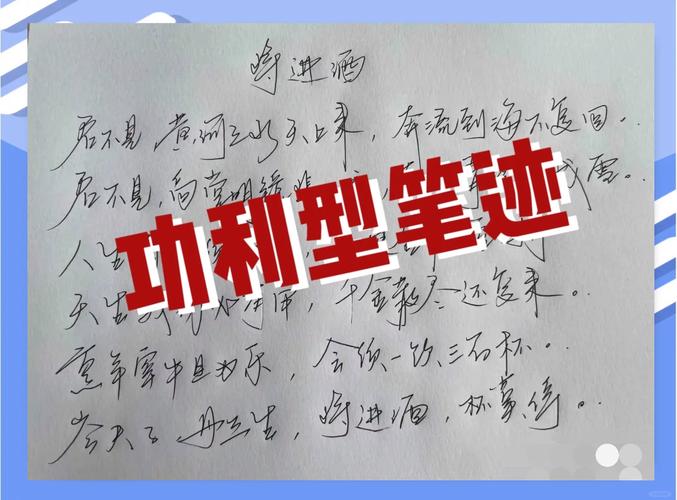 将进酒
君不见 黄河之水天上来，奔流到海不复回。
君不见，高堂明镜悲 成雪。
功利型笔迹
人生
天生 用，千金散尽还复来。
烹羊宰牛且为乐，会须一饮三百杯。
岑夫子 丹丘生，将进酒，杯莫停。